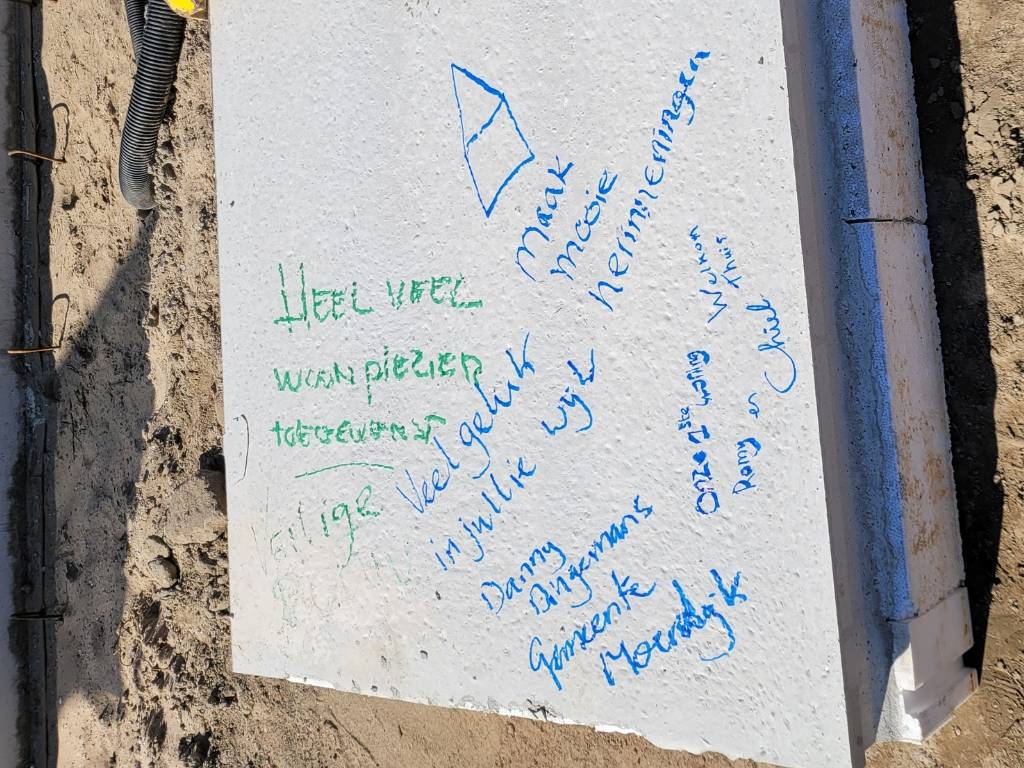 HEEL VEEL
WOON PLEZIER
TOEGEWENST
Veilige
Maak
mooie
herinneringen
Veel geluk
in jullie wijk
Danny
Dingemans
Gemeente
Moerdijk
Welkom
thuis
Onze 1ste woning
Romy en Chiel